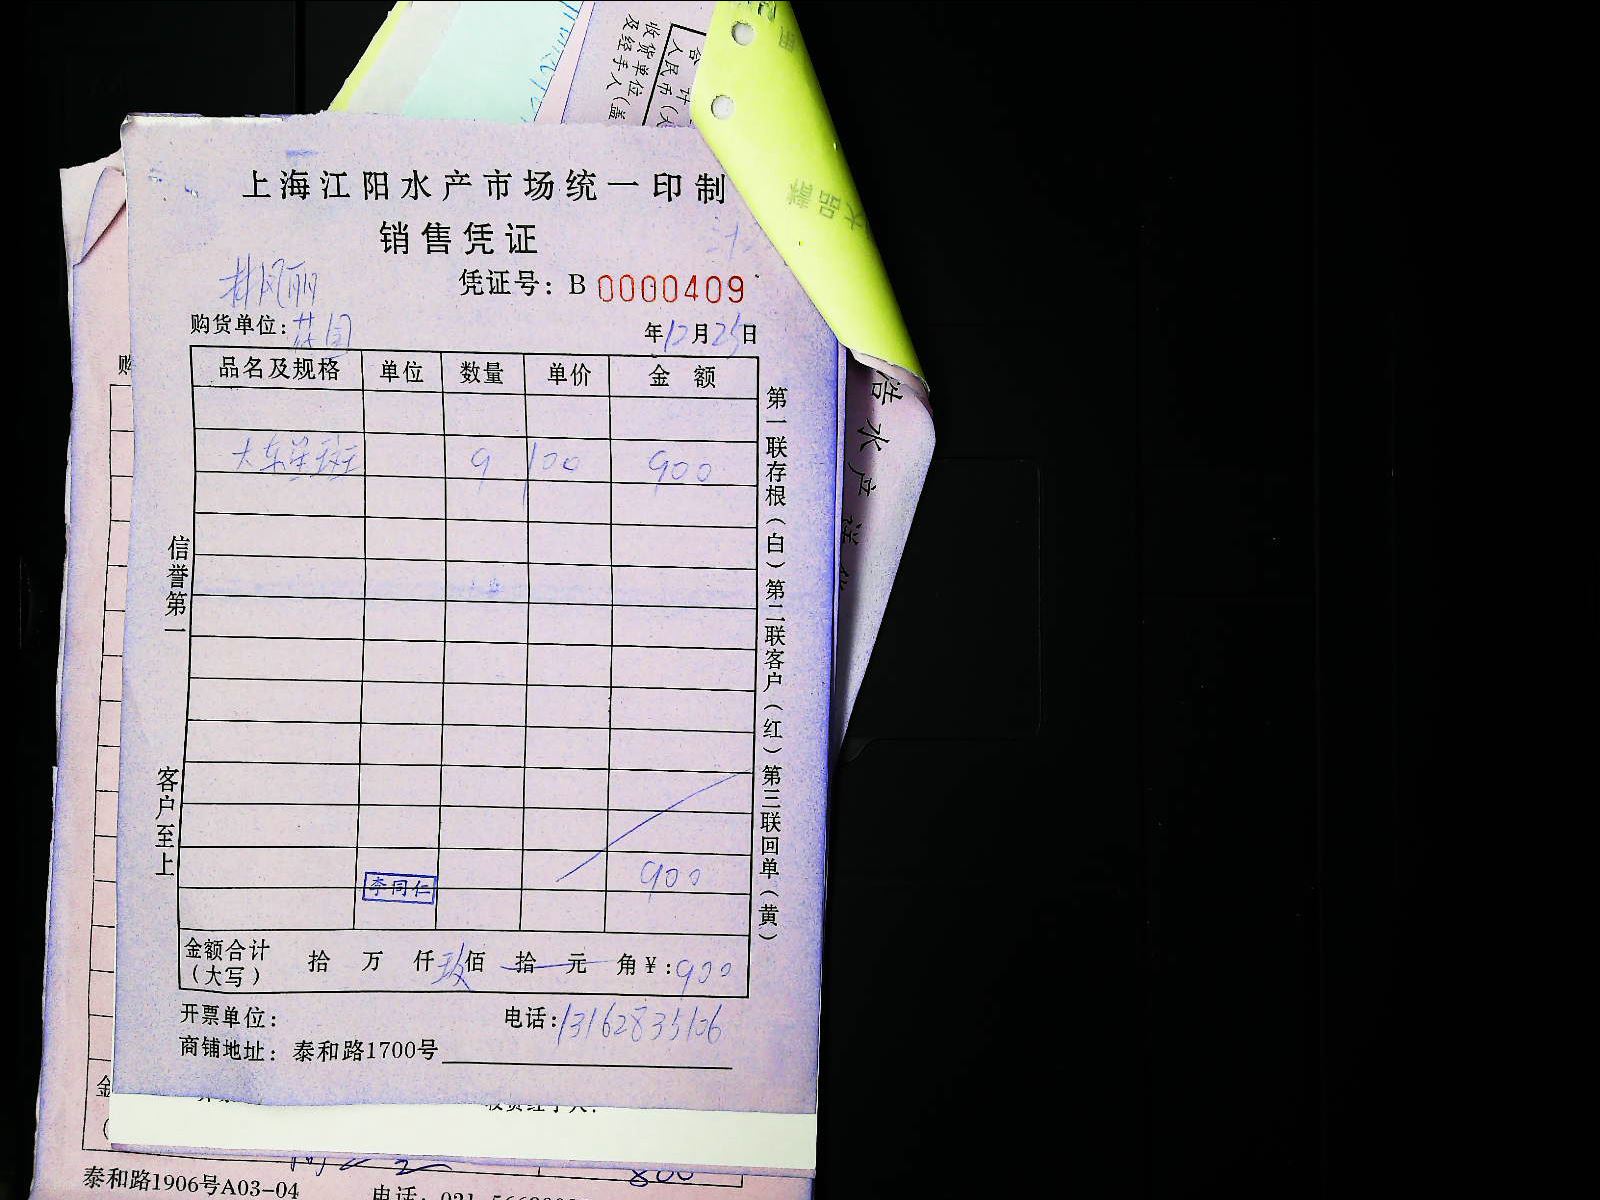 合 计
人民币(大
收货单位
及经手人(盖
大品种
上海江阳水产市场统一印制
销售凭证
林凤丽
凭证号：B 0000409
购货单位：花园
年12月25日
品名及规格 单位 数量 单价 金 额
大东星斑 9 100 900
900
李同仁
金额合计
(大写)
拾 万 仟玖佰 拾 元 角¥：900
开票单位：
电话：13162835106
商铺地址：泰和路1700号
信誉第一
客户至上
第一联存根(白) 第二联客户(红) 第三联回单(黄)
浩水产送货
购
金
(
800
泰和路1906号A03-04
电话：021-566